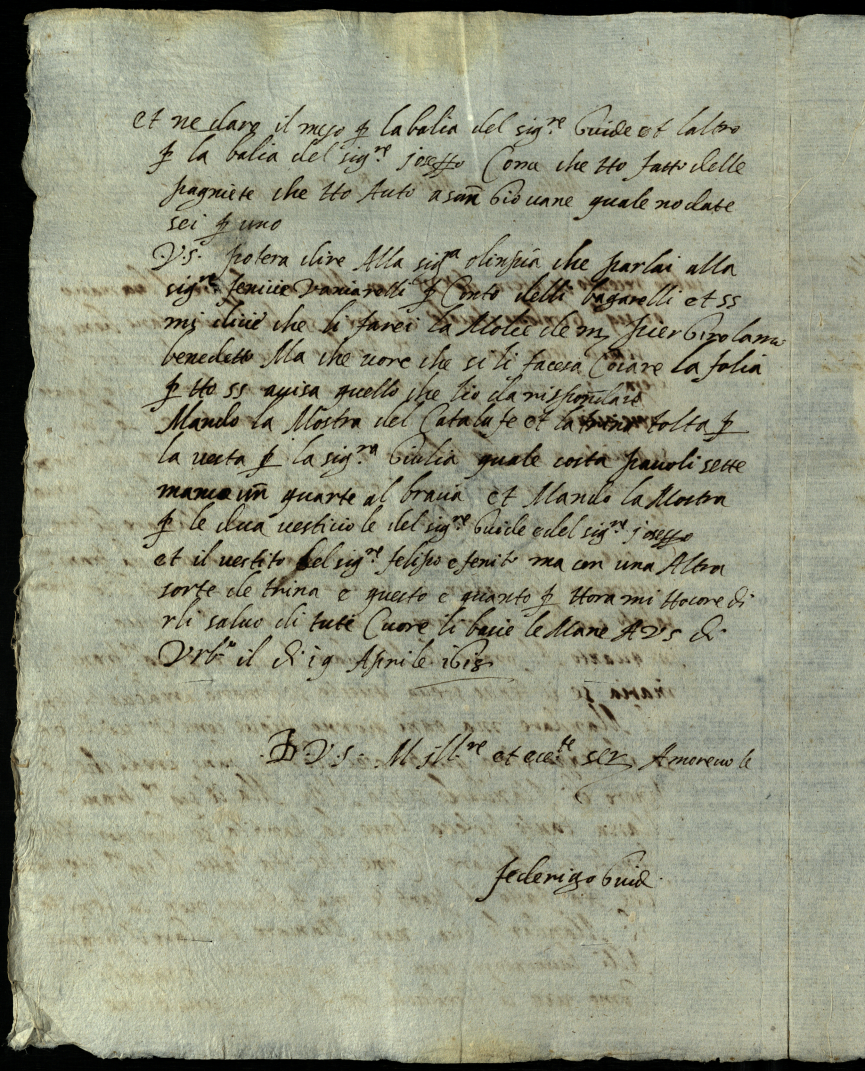 et ne dare il mezo p la balia del sig.re Guide et laltro
p la balia del sig.re joseffo Cora che tto fatto delle
pagniete che tto Auto a san Giovane quale no date
sei p uno
V.S. potera dire Alla sig.ra olinpia che parlai alla
sig.ra fenicie Vaniarelli p Conto delli bagarelli et ss
mi dicie che li farei la Molie de m
benedetto Ma che vore che si li facesa la folia
p tto ss avisa quello che lio da rispondare
Mando la Mostra del Catalufe et la trina tolta p
la vesta p la sig.ra Giulia quale costa pavoli sette
un quarte al bracia et Mando la Mostra
p le dua vesticiole del sig.re Guide e del sig.re joseffo
et il vestito del sig.re felipo e fenito ma con una Altra
sorte de trina e questo e quanto p ttora mi ttocore di
rli salvo di tute Cuore li bacio le Mane A V S di
Urb.o il di 19 Aprile
D V.S. M Ill.re et ecc.te ser Amorevole
federigo Guid